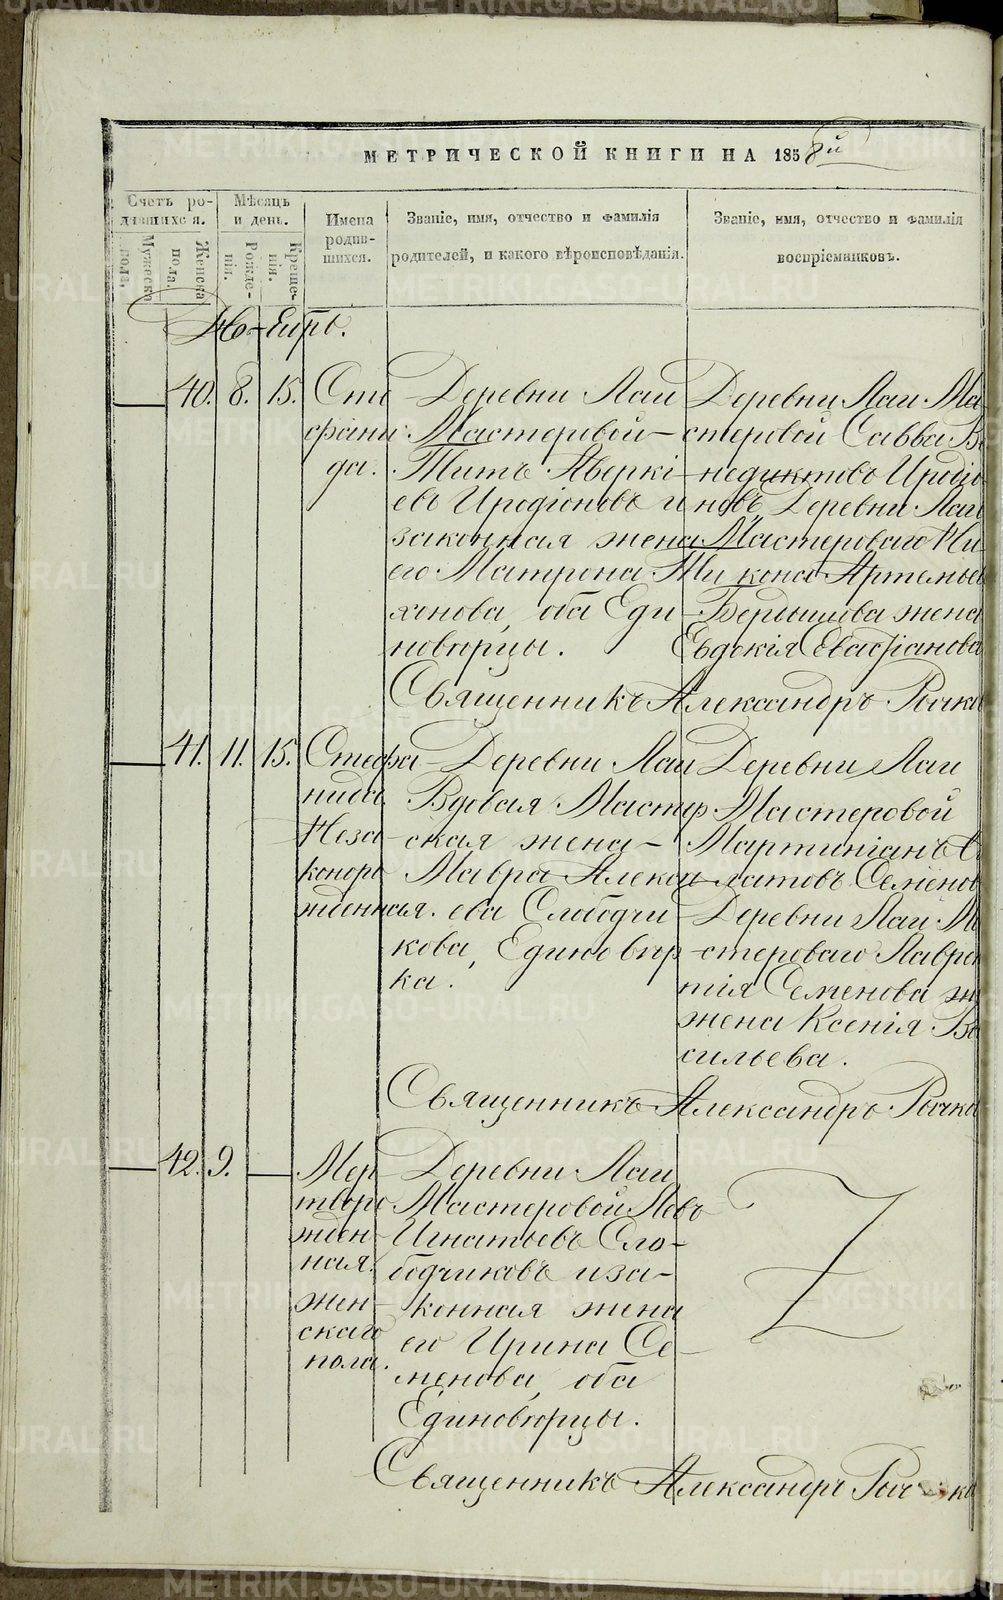 МЕТРИЧЕСКОЙ КНИГИ НА 1858й
Счетъ ро-
дившихся.
Мужеска
пола.
Женска
пола.
Мѣсяцъ
и день.
Рожде-
нія.
Креще-
нія.
Имена
родив-
шихся.
Званіе, имя, отчество и фамилія
родителей, и какого вѣроисповѣданія.
Званіе, имя, отчество и фамилія
воспріемниковъ.
Но-ябрь.
40. 8. 15.
Сте
фани
да.
Деревни Лаи
Мастеровой
Титъ Аверкі-
евъ Иродіоновъ и
законная жена
его Матрона Ти
хонова, оба Еди
новѣрцы.
Деревни Лаи Ма
стеровой Савва Ве
недиктовъ Иродіо
новъ, Деревни Лаи
Мастероваго Ти
хона Артемьев
Бердышева жена
Евдокія Евстафіанова
Священникъ Александръ Рычко
41. 11. 15.
Стефа
нида
Неза
коноро
жденная.
Деревни Лаи
Вдовая Мастер
ская жена
Мавра Алексѣ
ева Слободчи
кова, Единовѣр
ка.
Деревни Лаи
Мастеровой
Мартиніанъ
латовъ Семенов
Деревни Лаи Ма
стероваго Лаврен
тія Семенова
жена Ксенія Ва
сильева.
Священникъ Александръ Рычко
42. 9.
Мер
творо
жден
ная
жен
скаго
пола.
Деревни Лаи
Мастеровой Левъ
Игнатьевъ Сло-
бодчиковъ и за-
конная жена
его Ирина Се-
менова, оба
Единовѣрцы.
Священникъ Александръ Рычко